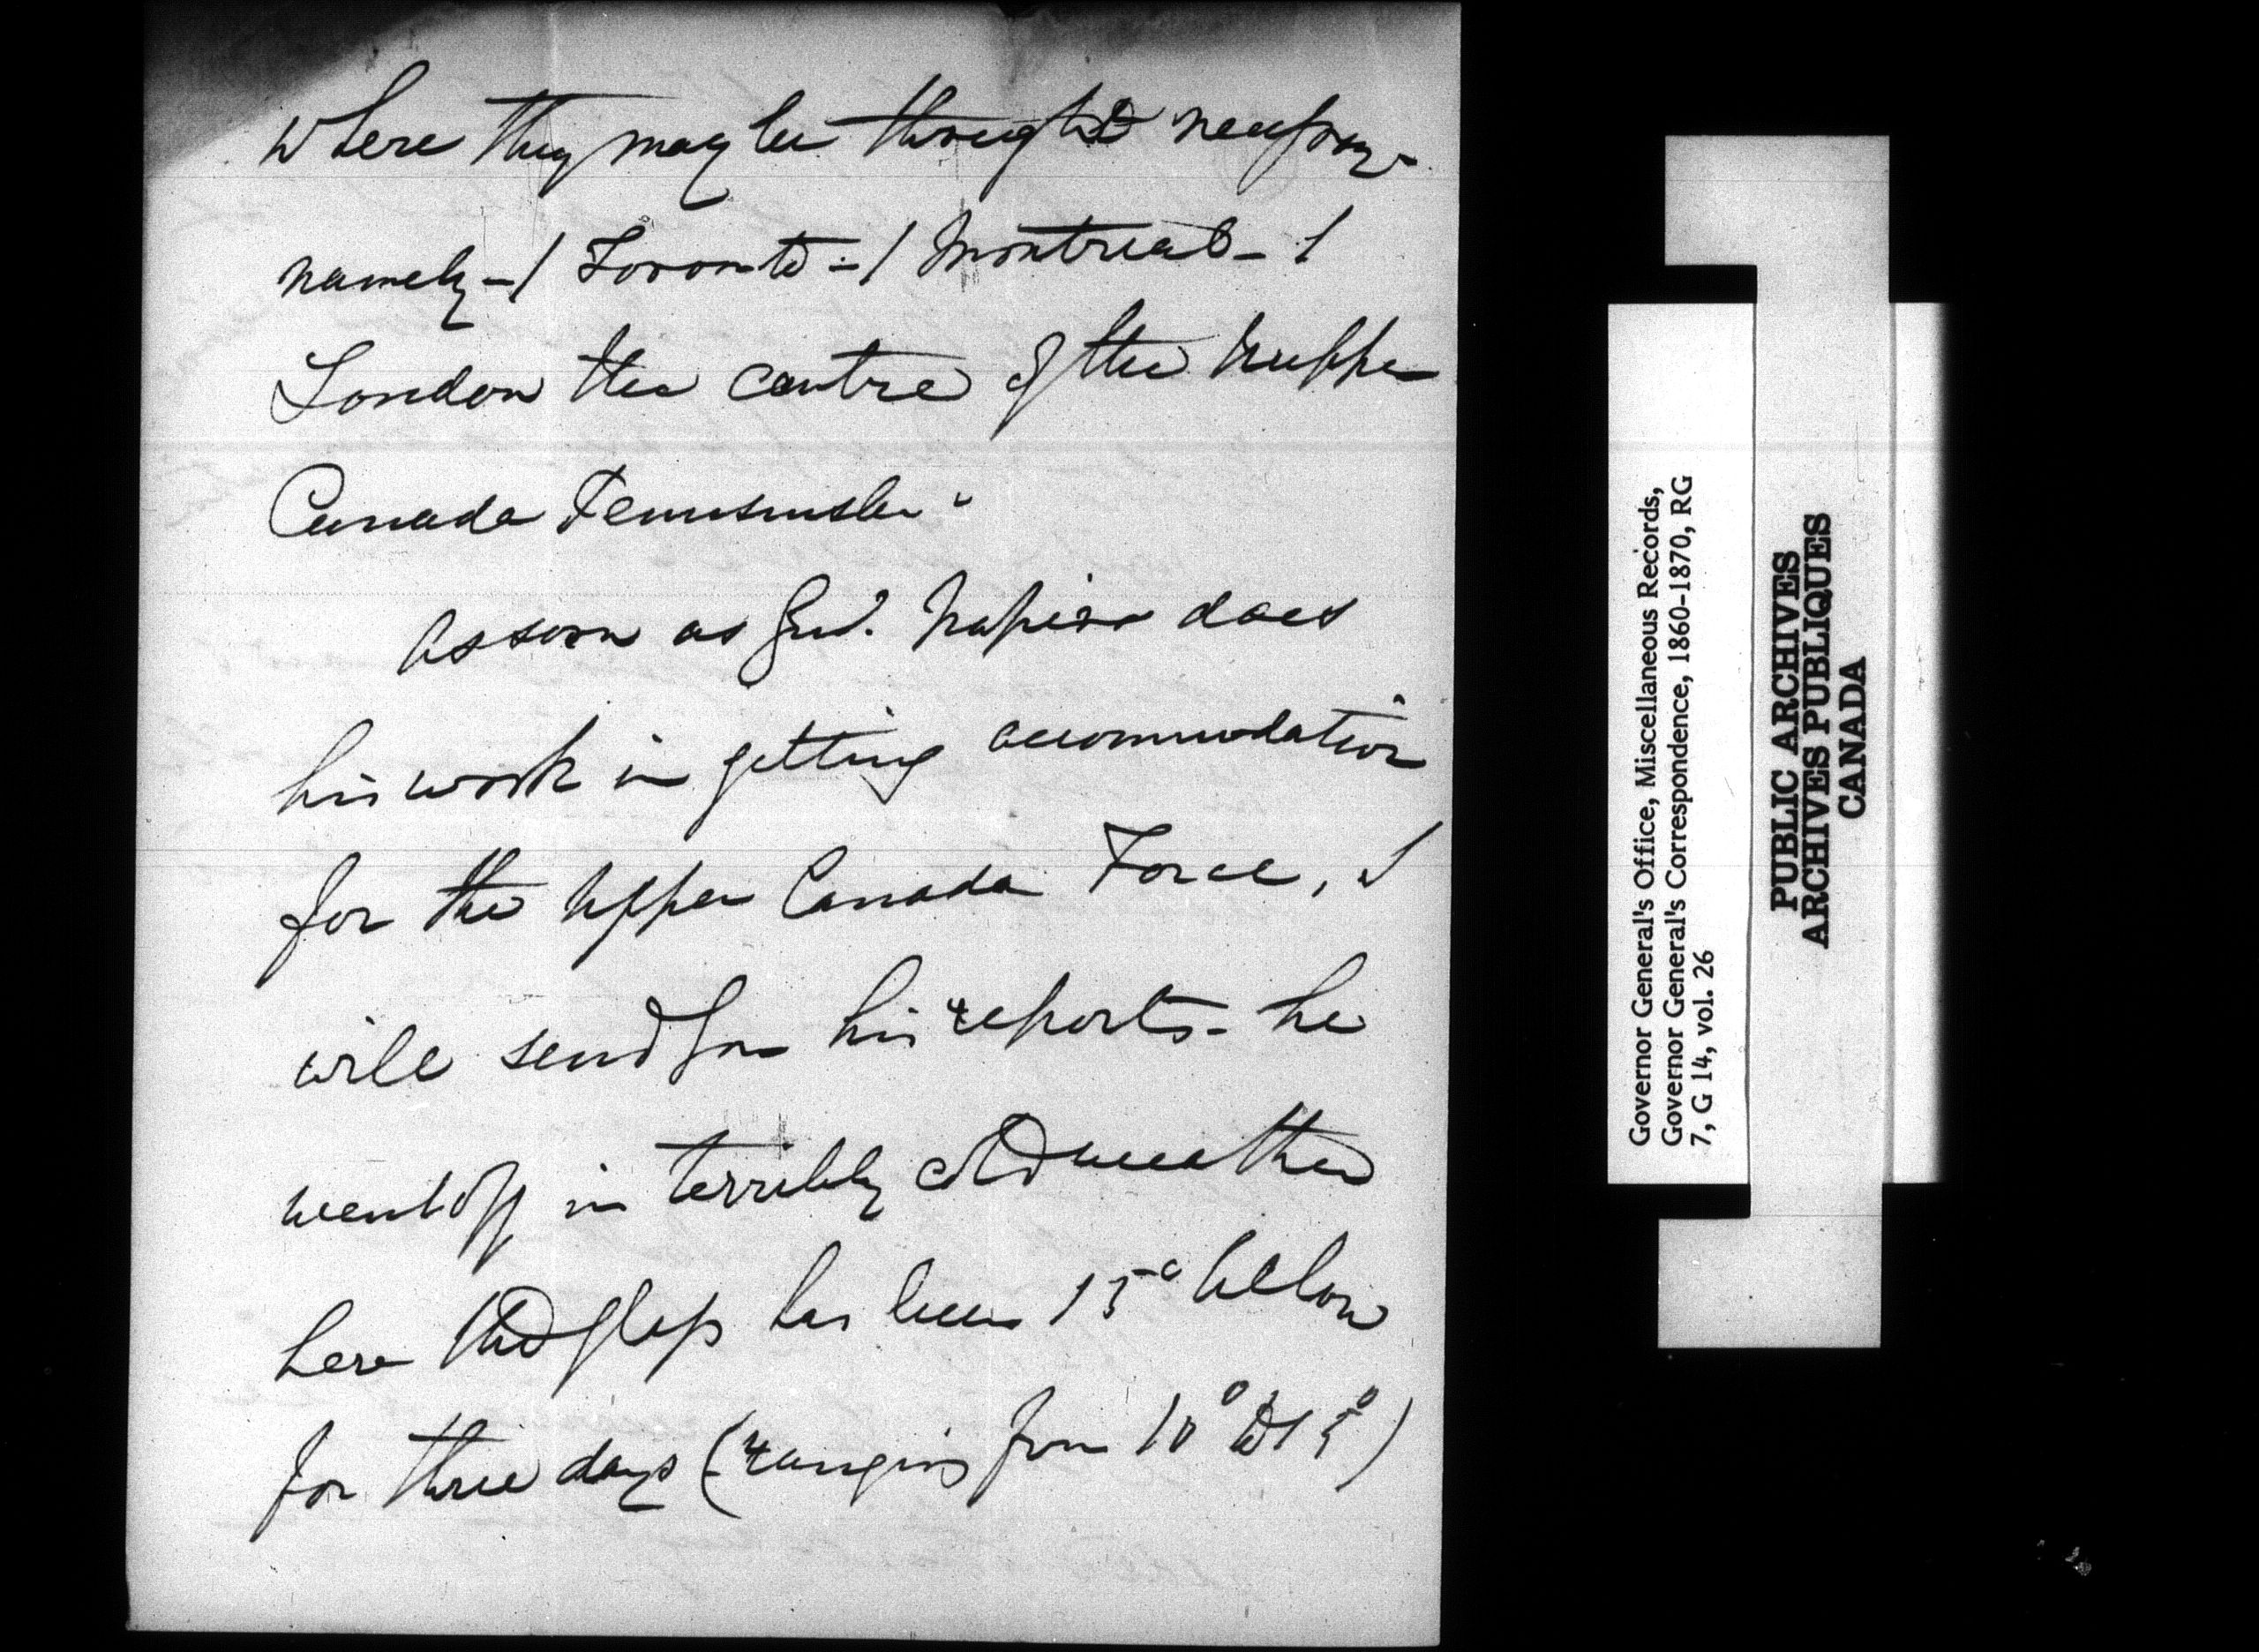 where they may be thought necessary
namely – 1 Toronto – 1 Montreal – 1
London the centre of the Upper
Canada Peninsula.
As soon as Genl. Napier does
his work in getting accommodation
for the Upper Canada Force, I
will send for his reports – he
went off in terribly cold weather
here the glass has been 15° below
for three days (ranging from 10° to 15°)
Governor General's Office, Miscellaneous Records,
Governor General's Correspondence, 1860-1870, RG
7, G 14, vol. 26
PUBLIC ARCHIVES
ARCHIVES PUBLIQUES
CANADA